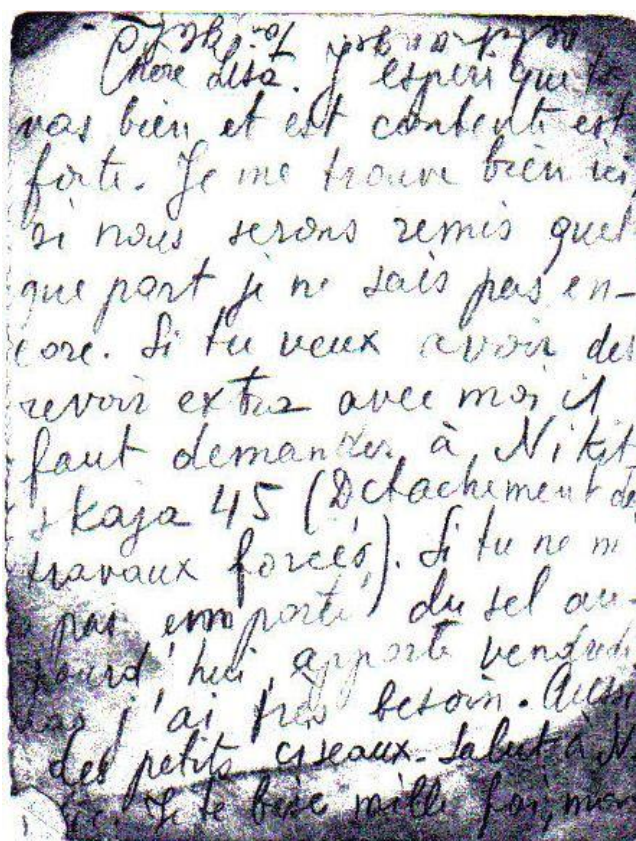 Chère Lisa. J'esperi que tu
vas bien et est contente est
forte. Je me trouve bien ici,
si nous serons remis quel
que part je ne sais pas en-
core. Si tu veux avoir des
revoir extra avec moi il
faut demander à Nikit
skaja 45 (Detachement de
travaux forcés). Si tu ne m
a pas emporté du sel au-
jourd'hui, apporte vendredi
j'ai très besoin. Aussi
des petits ciseaux. Salut à N.
Je te bése mille foi, mon